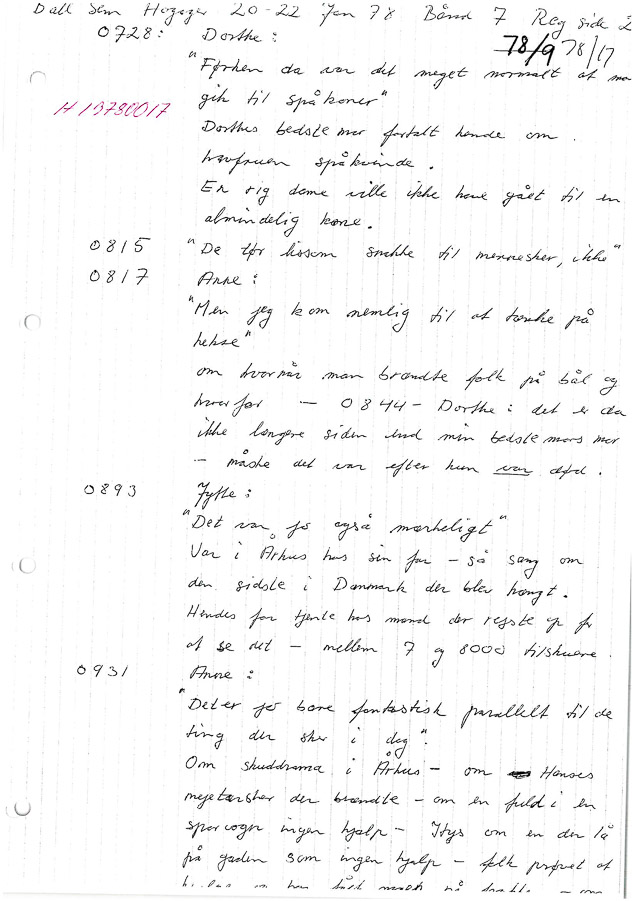 Dall Sem Hogager 20-22 Jan 78 Bånd 7 Reg side 2
0728: Dorthe: 78/9 78/17
"Førhen da var det meget normalt at ma
gik til spåkoner"
H 19780017
Dorthes bedstemor fortalt hende om
havfruen spåkvinde.
En rig dame ville ikke have gået til en
almindelig kone.
0815 "De tør lissom snakke til mennesker, ikke"
0817 Anne:
"Men jeg kom nemlig til at tænke på
hekse"
om hvornår man brændte folk på bål og
hvorfor — 0844 - Dorthe: det er da
ikke længere siden end min bedstemors mor
— måske det var efter hun var død.
0893 Jytte:
"Det var jo også mærkeligt"
Var i Århus hos sin far - så sang om
den sidste i Danmark der blev hængt.
Hendes far tjente hos mand der rejste op for
at se det - mellem 7 og 8000 tilskuere.
0931 Anne:
"Det er jo bare fantastisk parallelt til de
ting der sker i dag".
Om skuddrama i Århus - om Hanses
mejetærsker der brændte - om en fuld i en
sporvogn ingen hjælp - Itys om en der lå
på gaden som ingen hjalp - folk prøvet at